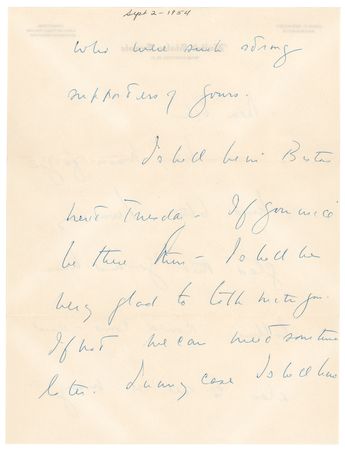 Sept 2-1954
who were such strong
supporters of yours.
I shall be in Boston
next Tuesday - If you will
be there then - I shall be
very glad to talk with you.
If not we can meet sometime
later. In any case I shall have